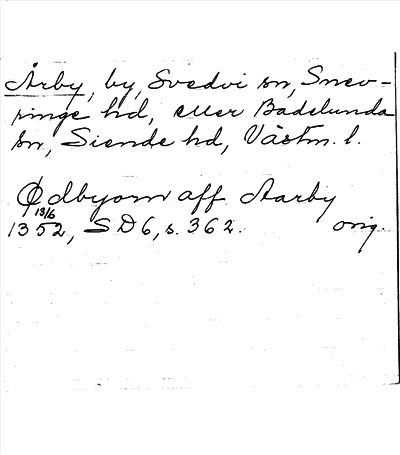 Årby, by, Svedvi sn, Snev-
ringe hd, eller Badelunda
sn, Siende hd, Västm. l.
Ødbyorn aff Aarby
13/6
1352, SD6, s. 362. orig.